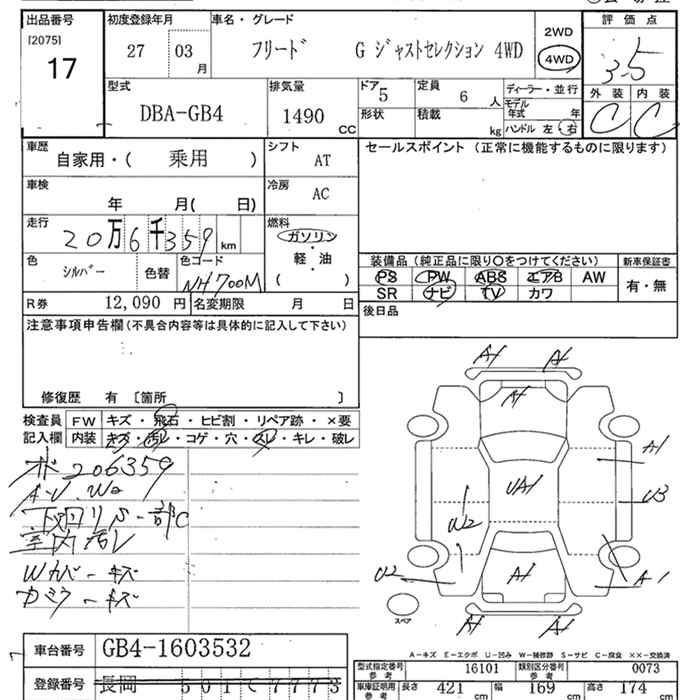 出品番号
[2075]
17
初度登録年月
27 03 月
車名・グレード
フリード G ジャストセレクション 4WD
2WD
4WD
評価点
3.5
外装 内装
C C
型式
DBA-GB4
排気量
1490 CC
ドア 5
定員 6 人
形状
積載 kg
ディーラー・並行
モデル年式 年
ハンドル 左・右
車歴
自家用・( 乗用 )
シフト AT
冷房 AC
車検
年 月( 日)
走行
20万6千359 km
燃料
ガソリン
・
軽・油
( )
色 シルバー
色替
色コード NH700M
R券 12,090 円
名変期限 月 日
セールスポイント (正常に機能するものに限ります)
装備品 (純正品に限り○をつけてください)
PS PW ABS エアB AW
SR ナビ TV カワ
新車保証書
有・無
後日品
注意事項申告欄 (不具合内容等は具体的に記入して下さい)
修復歴 有 〔箇所 〕
検査員記入欄
FW キズ・飛石・ヒビ割・リペア跡・×要
内装 キズ・汚レ・コゲ・穴・スレ・キレ・破レ
206359
室内汚レ
Wカバーキズ
A1 A1
A1
A1
UA1
U3
U2
U2
A1
A1
A1 A1
スペア
A-キズ E-エクボ U-凹み W-補修跡 S-サビ C-腐食 ××-交換済
車台番号 GB4-1603532
登録番号 長岡 501C7773
型式指定番号参考 16101
類別区分番号参考 0073
車庫証明用参考 長さ 421 cm 幅 169 cm 高さ 174 cm